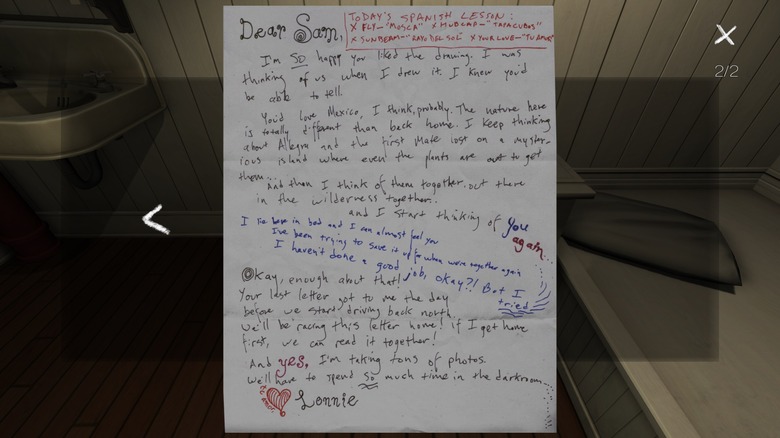 Dear Sam,
TODAY'S SPANISH LESSON:
x FLY—"MOSCA" x HUBCAP—"TAPACUBOS"
x SUNBEAM—"RAYO DEL SOL" x YOUR LOVE—"TU AMOR"
I'm SO happy you liked the drawing. I was
thinking of us when I drew it. I knew you'd
be able to tell.
You'd love Mexico, I think, probably. The nature here
is totally different than back home. I keep thinking
about Allegra and the first Mate lost on a myster-
ious island where even the plants are out to get
them...
And then I think of them together.. out there
in the wilderness together..
and I start thinking of you
again
I lie here in bed and I can almost feel you
I've been trying to save it up for when we're together again
I haven't done a good job, okay?! But I
tried
Okay, enough about that!
Your last letter got to me the day
before we started driving back north.
We'll be racing this letter home! If I get home
first, we can read it together!
And yes, I'm taking tons of photos.
We'll have to spend so much time in the darkroom...
Lonnie
2/2